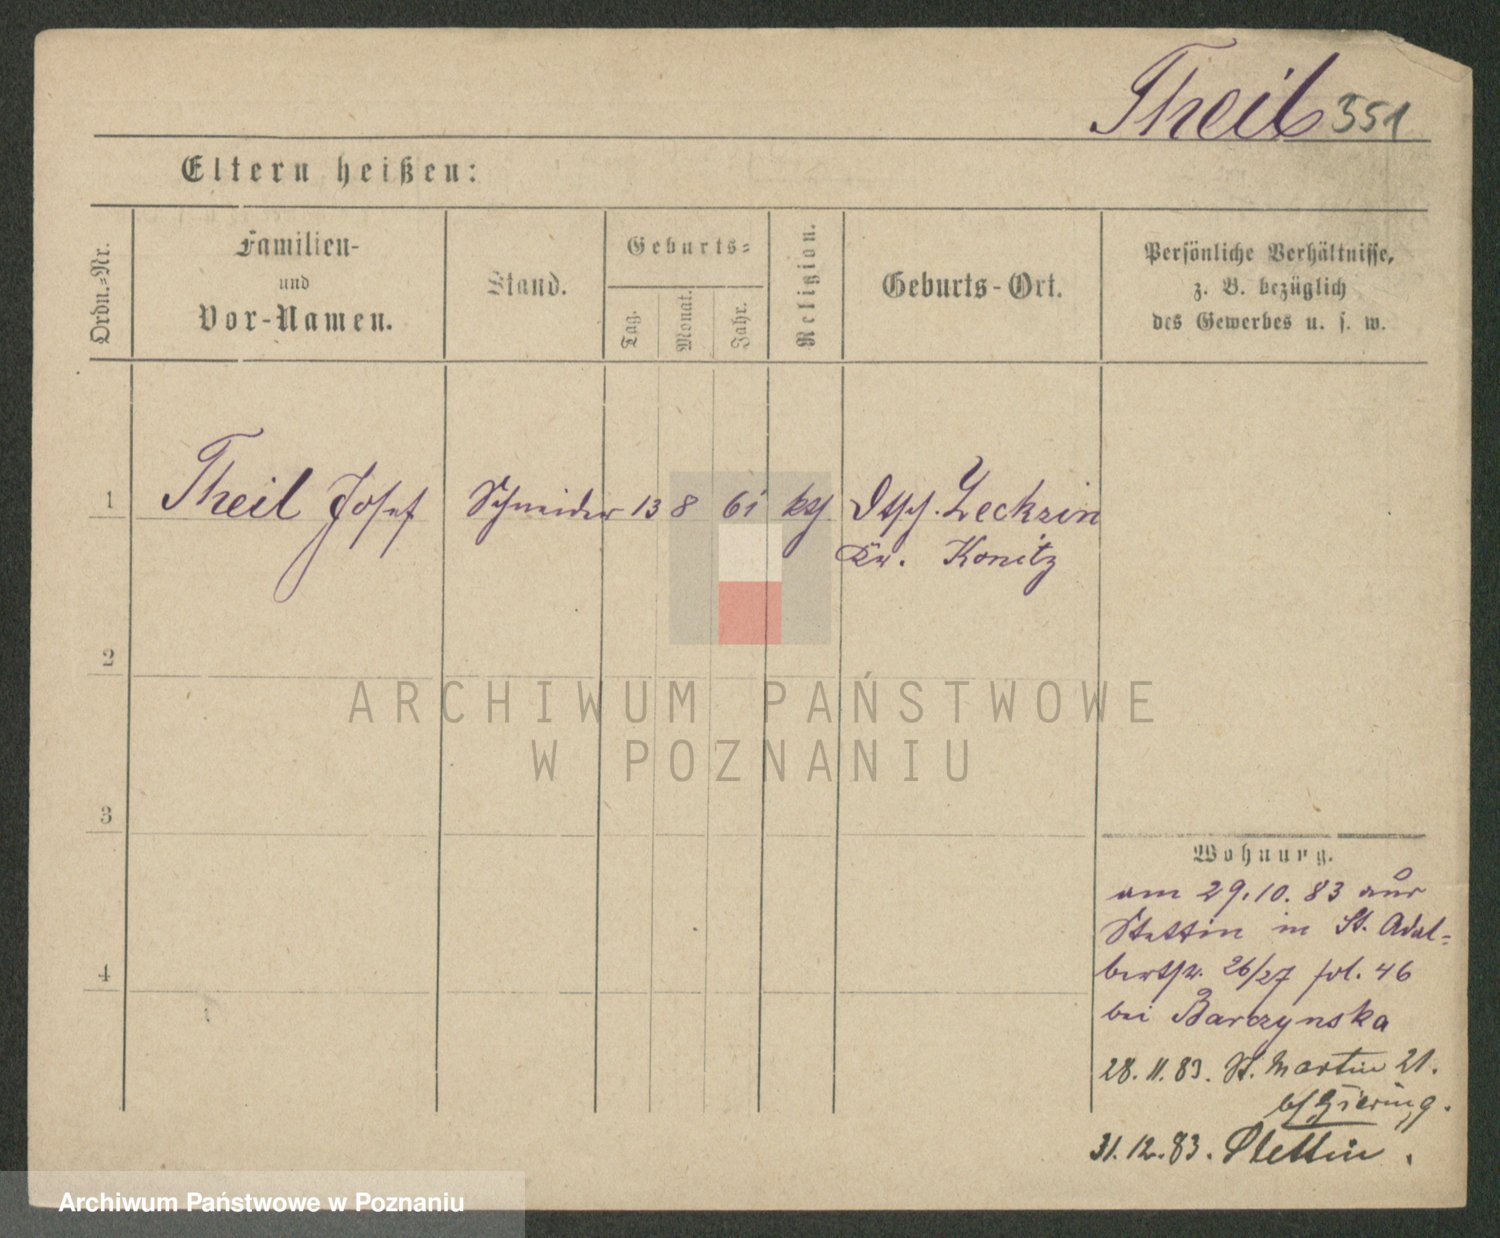 Theil 351
Eltern heißen:
Ordn.-Nr.
Familien-
und
Vor-Namen.
Stand.
Geburts-
Tag.
Monat.
Jahr.
Religion.
Geburts-Ort.
Persönliche Verhältnisse,
z. B. bezüglich
des Gewerbes u. s. w.
1 Theil Josef Schneider 13 8 61 kth Dtsch. Zeckzin
Kr. Konitz
2
3
4
Wohnung.
am 29.10.83 aus
Stettin in St. Adal-
bertstr. 26/27 fol. 46
bei Barczynska
28.11.83. St. Martin 21.
b/ Giering.
31.12.83. Stettin.
ARCHIWUM PAŃSTWOWE
W POZNANIU
Archiwum Państwowe w Poznaniu